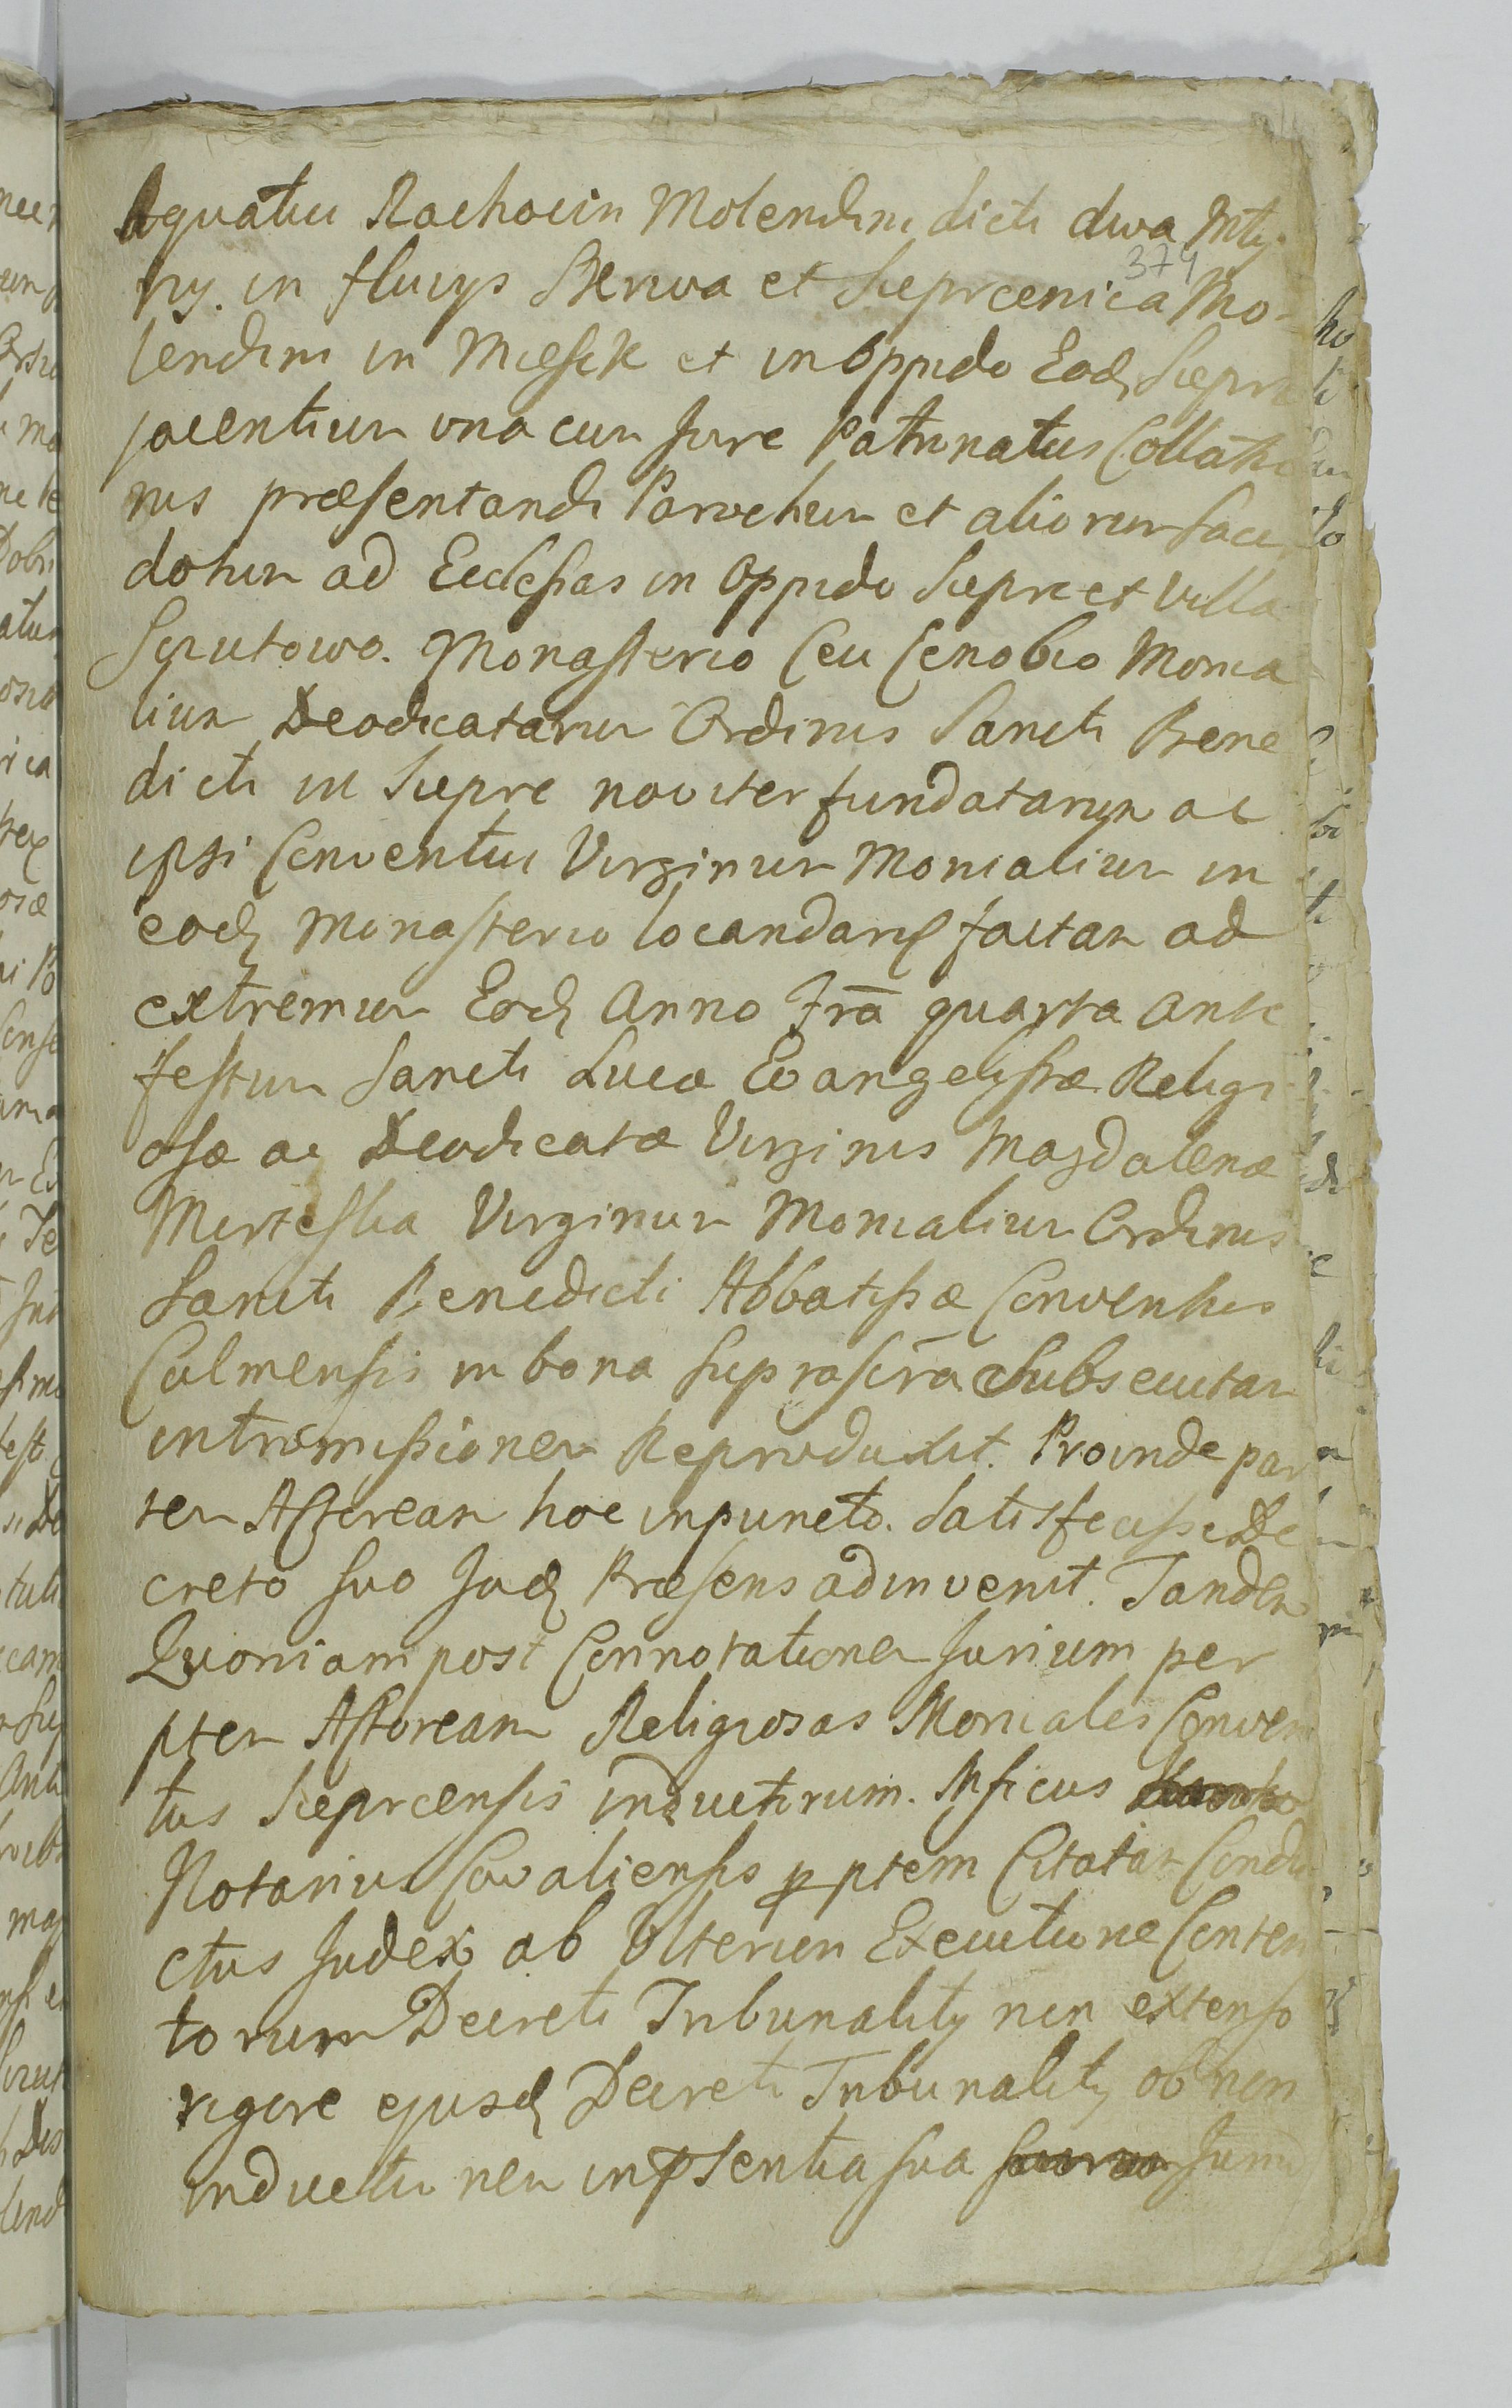 Aquatici Rachocin Molendini dicti dwa Mły
ny. in fluvys Skrwa et Sieprcenica Mo-
379
lendini in Miesik et in Oppido Eod Siepre
jacentium una cum Jure Patronatus Collatio
nis præsentandi Parochum et aliorum Sacer
dotum ad Ecclesias in Oppido Siepre et Villa
Szczutowo. Monasterio seu Cenobio Monia
lium Deodicatarum Ordinis Sancti Bene
dicti in Siepre noviter fundatarum ac
ipsi Conventui Virginum Monialium in
eod Monasterio locandarum factam ad
extremum Eod Anno Fra quarta ante
festum Sancti Lucæ Evangelistæ Religi
osæ ac Deodicatæ Virginis Magdalenæ
Virginum Monialium Ordinis
Sancti Benedicti Abbatissæ Conventus
Culmensis in bona suprascra Subsecutam
intromissionem Reproduxit. Proinde par
tem Actoream hoc in puncto. Satisfecisse De
creto suo Jud Præsens adinvenit. Tandem
Quoniam post Connotationem Jurium per
ptem Actoream Religiosas Moniales Conven
tus Sieprcensis inductorum. Mficus
Notarius Covaliensis p ptem Citatam Condu
ctus Judex ab Ulteriori Executione Conten
torum Decreti Tribunality non extenso
rigore ejusd Decreti Tribunality ob non
inductionem in pSentia sua Jurium